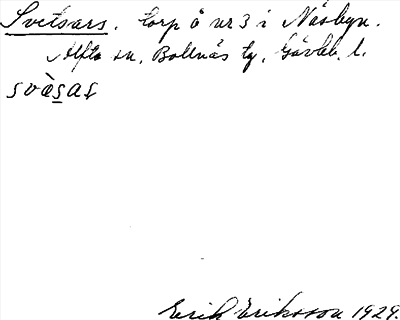 Svetsars. torp å nr 3 i Näsbyn.
Alfta sn. Bollnäs tg, Gävleb. l.
svèsas
Erik Eriksson 1929.